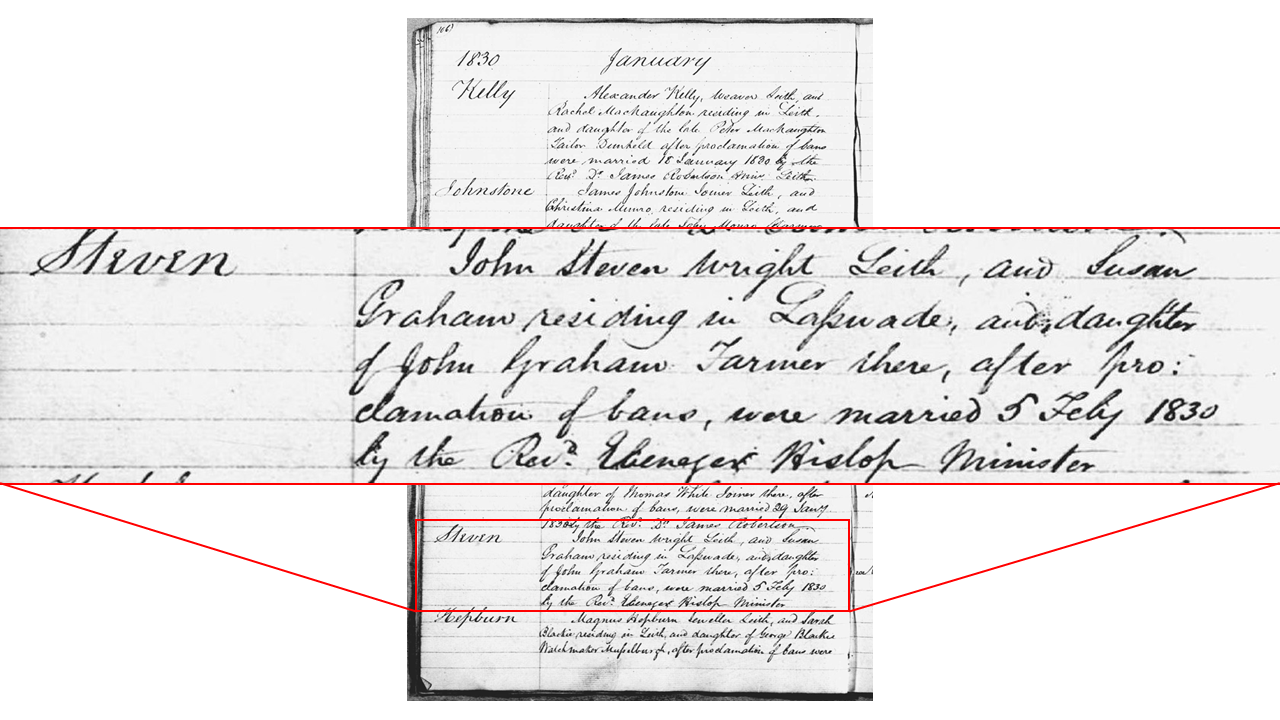 166)
1830 January
Kelly Alexander Kelly, weaver Leith, and
Rachel MacNaughton residing in Leith,
and daughter of the late Peter MacNaughton
Tailor Dunkeld after proclamation of bans
were married 18 January 1830 by the
Revd. Dr. James Robertson Minr. Leith.
Johnstone James Johnstone Joiner Leith, and
Christina Munro, residing in Leith, and
daughter of the late John Munro
Steven John Steven Wright Leith, and Susan
Graham residing in Laſswade, and daughter
of John Graham Farmer there, after pro:
clamation of bans, were married 5 Feby 1830
by the Revd. Ebenezer Hislop Minister
daughter of Thomas White Joiner there, after
proclamation of bans, were married 29 Jany
1830 by the Revd. Dr. James Robertson
Steven John Steven Wright Leith, and Susan
Graham residing in Laſswade, and daughter
of John Graham Farmer there, after pro:
clamation of bans, were married 5 Feby 1830
by the Revd. Ebenezer Hislop Minister
Hepburn Magnus Hepburn Jeweller Leith, and Sarah
Blackie residing in Leith, and daughter of George Blackie
Watchmaker Muſselburgh, after proclamation of bans were